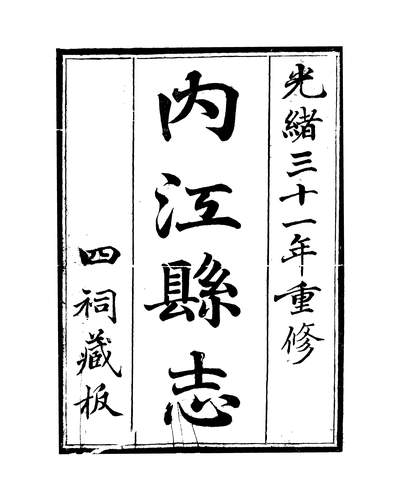 光緒三十一年重修
内江縣志
四祠藏板